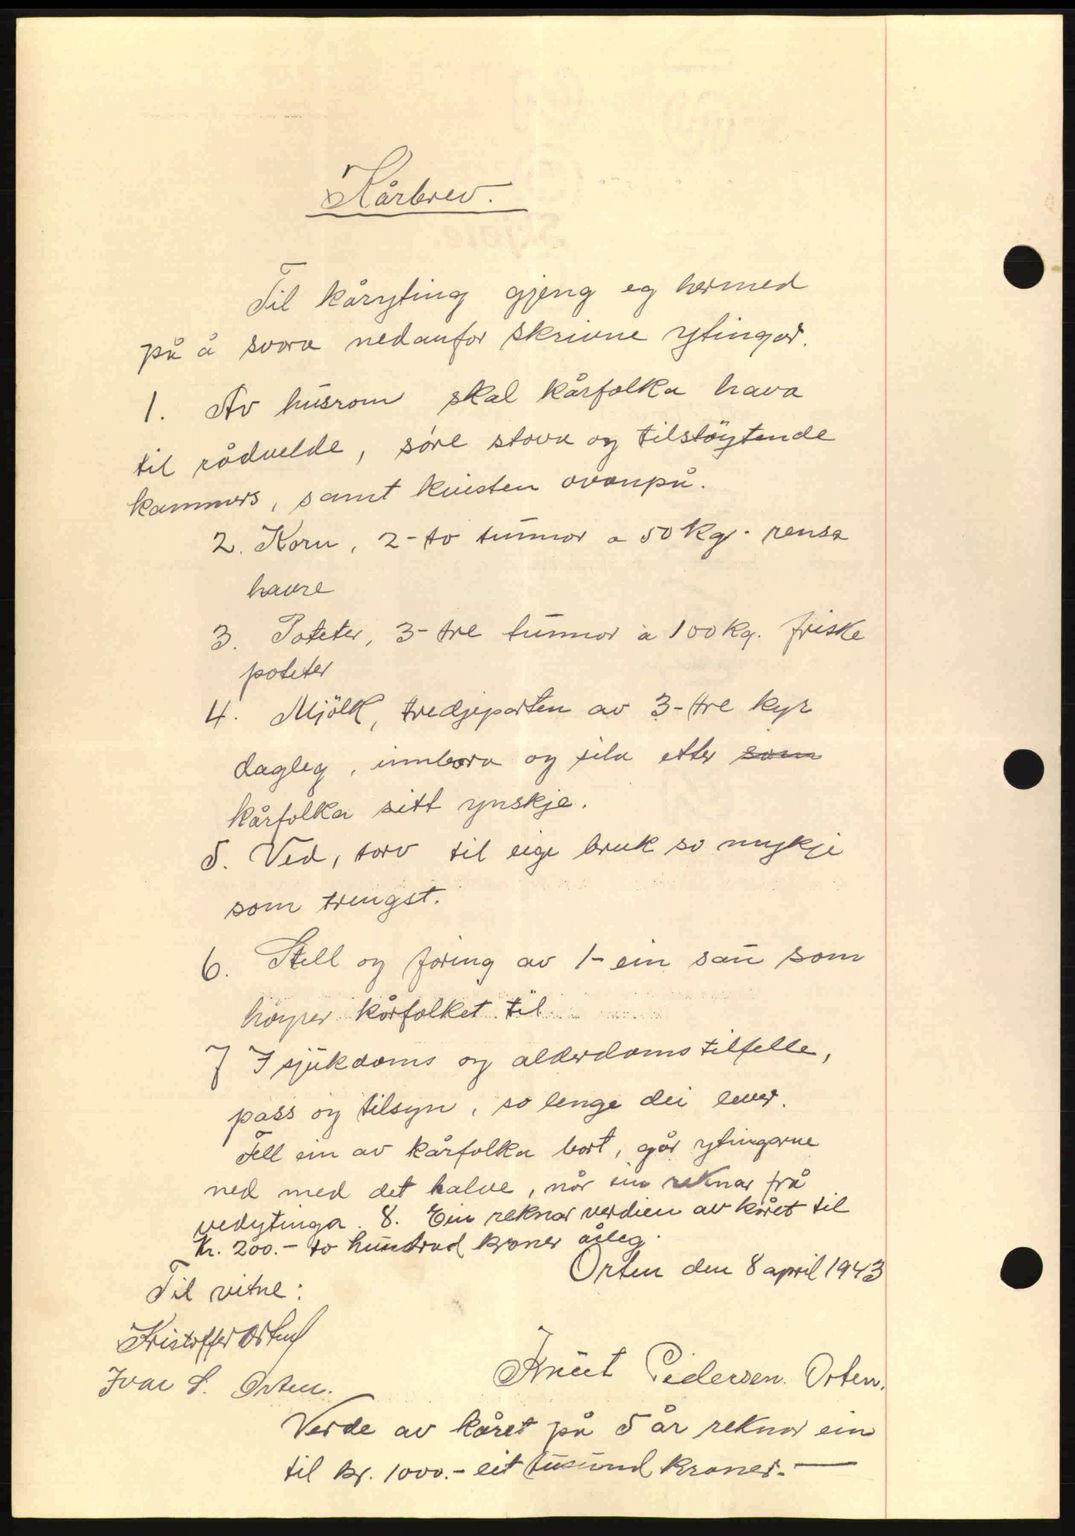 Kårbrev.
Til kåryting gjeng eg hermed
på å svara nedanfor skrivne ytingar.
1. Av husrom skal kårfolka hava
til rådvelde, søre stova og tilstøytende
kammers, samt kvisten ovanpå.
2. Korn, 2- to tunnor a 50 kg. rensa
havre
3. Poteter, 3- tre tunnor à 100 kg. friske
poteter
4. Mjölk, tredjeparten av 3- tre kyr
dagleg, innbora og sila etter som
kårfolka sitt ynskje.
5. Ved, torv til eige bruk so mykje
som trengst.
6. Stell og foring av 1- ein sau som
høyrer kårfolket til
7 I sjukdoms og alderdoms tilfelle,
pass og tilsyn, so lenge dei lever.
Fell ein av kårfolka bort, går ytingarne
ned med det halve, når ein reknar frå
vedytinga. 8. Ein reknar verdien av kåret til
Kr. 200.- to hundrad kroner årleg.
Orten den 8 april 1943
Til vitne:
Kristoffer Orten
Ivar S. Orten.
Knut Pedersen Orten.
Verde av kåret på 5 år reknar ein
til kr. 1000.- eit tusund kroner.-